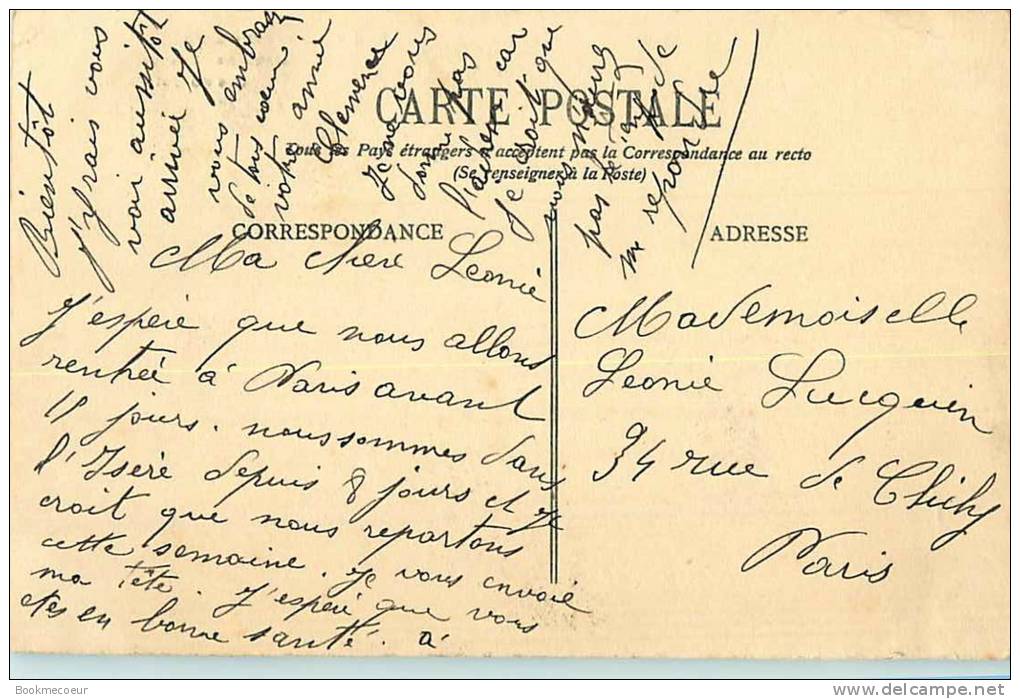 CARTE POSTALE
Tous les Pays étrangers n'acceptent pas la Correspondance au recto
(Se renseigner à la Poste)
CORRESPONDANCE
ADRESSE
Ma chère Leonie
J'espère que nous allons
rentrée à Paris avant
15 jours. nous sommes dans
l'Isère depuis 8 jours et je
croit que nous repartons
cette semaine. Je vous envoie
ma tête. J'espère que vous
etes en bonne santé. à
Bientôt
j'irais vous
voir aussitôt
arriver Je
vous embrasse
de tous coeur
votre amie
Clemence
Je ne vous
donne pas
l'adresse car
je croit que
nous
pas le temps de
me repondre
Mademoiselle
Leonie Lucquin
34 rue de Clichy
Paris
Bookmecoeur
www.delcampe.net